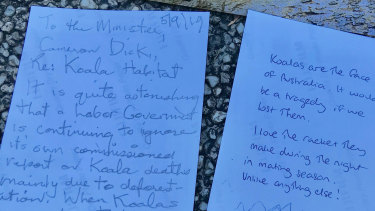 To the Minister, 5/9/19
Cameron Dick,
Re: Koala Habitat
It is quite astonishing
that a Labor Government
is continuing to ignore
it's own commissioned
report on Koala deaths
mainly due to deforest-
ation! When Koalas
Koalas are the face
of Australia. It would
be a tragedy if we
lost them.
I love the racket they
make during the night
in mating season.
Unlike anything else!